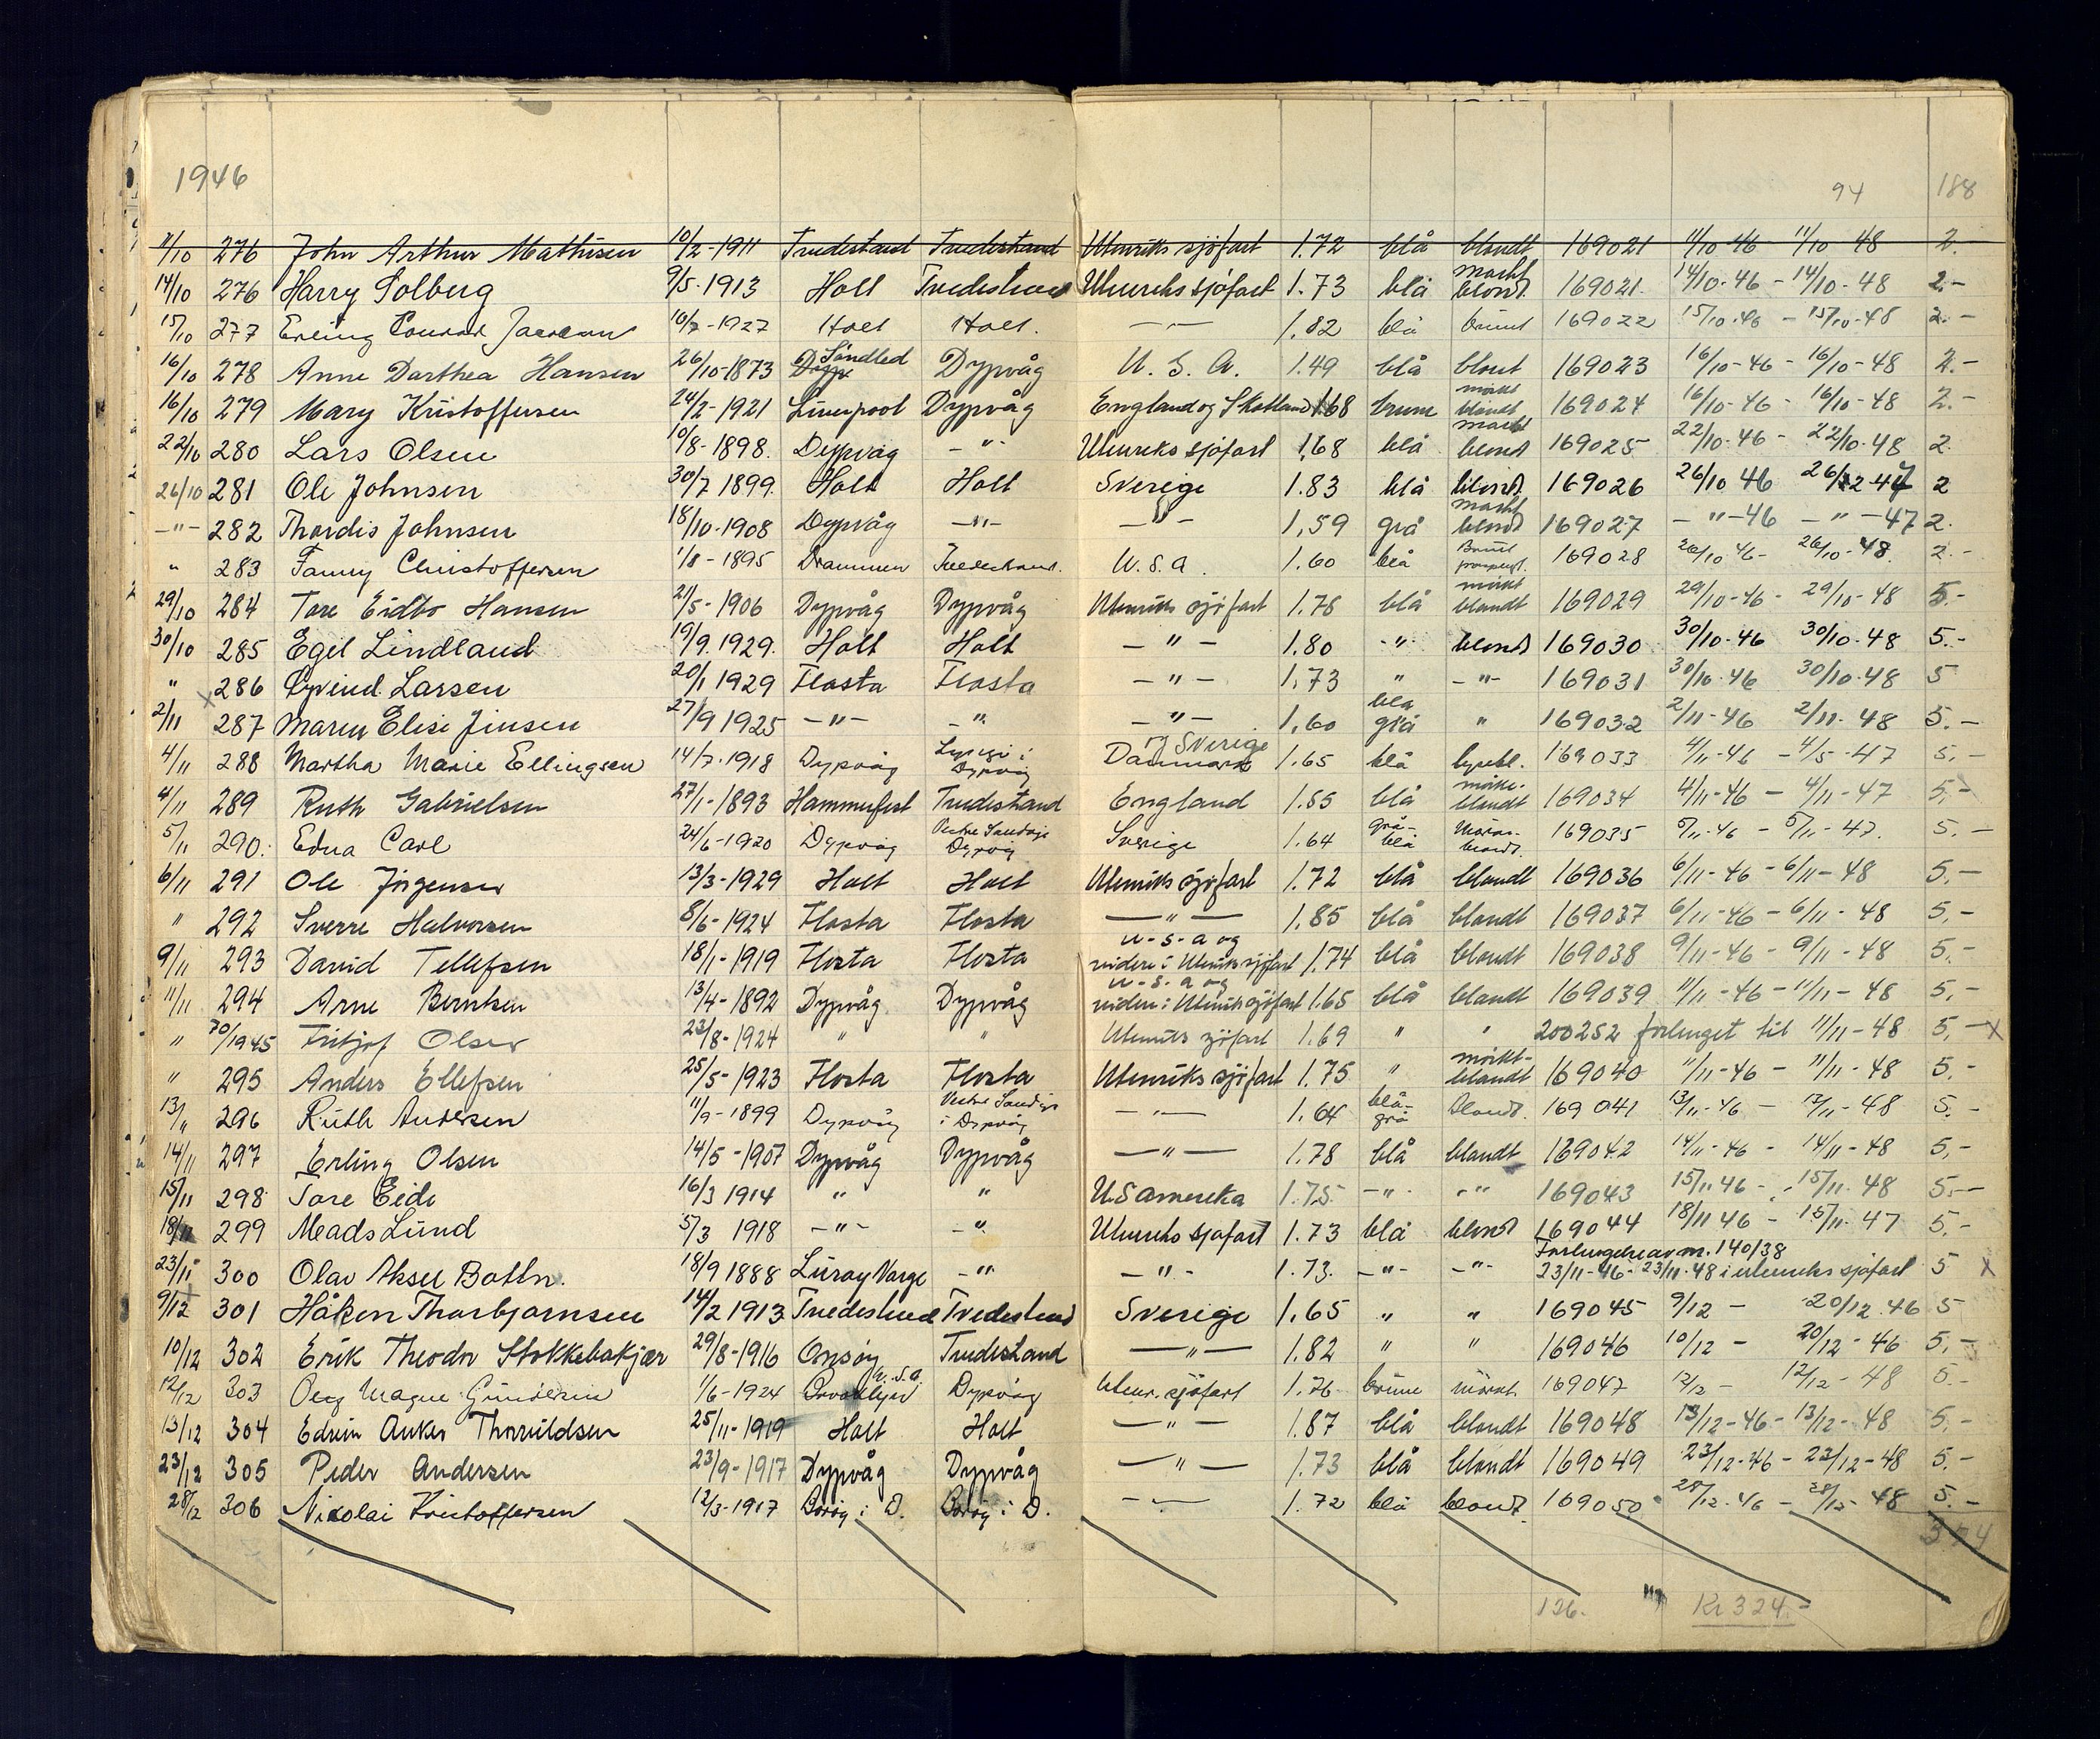 1946
94 188
11/10 276 John Arthur Mathisen 10/2-1911 Tvedestrand Tvedestrand Utenriks sjöfart 1.72 blå blondt 169021 11/10-46 11/10-48 2.-
14/10 276 Harry Solberg 9/5-1913 Holt Tvedestrand Utenriks sjöfart 1.73 blå mørkt blond. 169021. 14/10-46 - 14/10-48 2-
15/10 277 Erling Conrad Jacobsen 10/7-1927 Holt Holt. -"- 1.82 blå brunt 169022 15/10-46 - 15/10-48 2.-
16/10 278 Anne Dorthea Hansen 26/10-1873 Söndled Dypvåg U.S.A. 1.49 blå blont 169023 16/10-46 - 16/10-48 2.-
16/10 279 Mary Kristoffersen 24/2-1921 Liverpool Dypvåg England og Skotland 1.68 brune mörkt blondt 169024 16/10-46 - 16/10-48 2.-
22/10 280 Lars Olsen 10/8-1898. Dypvåg -"- Utenriks sjöfart 1,68 blå mørkt blond 169025 22/10-46 - 22/10-48 2.
26/10 281 Ole Johnsen 30/7 1899. Holt Holt Sverige 1.83 blå blond. 169026 26/10 46 26/12-47 2
-"- 282 Thordis Johnsen 18/10-1908 Dypvåg -"- -"- 1,59 grå mørkt blond 169027 -"-46 -"-47 2.
" 283 Fanny Christoffersen 1/8-1895 Drammen Tvedestrand. U.S.A. 1.60 blå brunt 169028 26/10 46- 26/10-48 2.-
29/10 284 Tore Eidbo Hansen 21/5-1906 Dypvåg Dypvåg Utenriks sjöfart 1.78 blå mörkt blandt 169029 29/10-46- 29/10-48 5.-
30/10 285 Egil Lindland 19/9.1929. Holt Holt -"- 1.80 -" blond 169030 30/10-46 30/10-48 5.-
" x 286 Øyvind Larsen 20/1 1929 Flosta Flosta -"- 1,73 " -"- 169031 30/10-46 30/10-48 5
2/11 287 Maren Elise Jensen 27/9 1925 -"- -". -"- 1,60 blå grå " 169032 2/11-46 2/11-48 5.-
4/11 288 Martha Marie Ellingsen 14/7-1918 Dypvåg Dypvåg Danmark og Sverige 1.65 blå lysebl. 169033 4/11-46 - 4/5-47 5,-
4/11 289 Ruth Gabrielsen 27/1-1893 Hammerfest Tvedestrand England 1.55 blå mörke-blandt 169034 4/11-46 - 4/11-47 5,-
5/11 290. Edna Carl 24/6-1920 Dypvåg Vestre Sandøya Dypvåg Sverige 1.64 grå-blå mörk-blondt. 169035 5/11-46 - 5/11-47. 5.-
6/11 291 Ole Jörgensen 13/3-1929 Holt Holt Utenriks sjöfart 1.72 blå blandt 169036 6/11-46 - 6/11-48 5.-
" 292 Sverre Halvorsen 8/6-1924 Flosta Flosta -"- 1.85 blå blandt 169037 6/11-46 - 6/11-48 5,-
9/11 293 David Tellefsen 18/1-1919 Flosta Flosta U.S.A og videre i Utenriks sjöfart 1.74 blå blandt 169038 9/11-46 - 9/11-48 5,-
11/11 294 Arne Berntsen 13/4-1892 Dypvåg Dypvåg U.S.A og videre i Utenriks sjöfart 1.65 blå blandt 169039 11/11-46 - 11/11-48 5,-
" 70/1945 Fritjof Olsen 23/8-1924 " " Utenriks sjöfart 1.69 " " 200252 forlenget til 11/11-48 5,- x
" 295 Anders Ellefsen 25/5-1923 Flosta Flosta Utenriks sjöfart 1.75 " mörkt-blandt 169040 11/11-46 - 11/11-48 5.-
13/11 296 Ruth Andersen 11/9-1899 Dypvåg Vestre Sandøya i Dypvåg -"- 1.64 blå-grå blondt. 169041 13/11-46 - 13/11-48 5.-
14/11 297 Erling Olsen 14/5-1907 Dypvåg Dypvåg -"- 1.78 blå blandt 169042 14/11-46 - 14/11-48 5,-
15/11 298 Tore Eide 16/3 1914 " " U.S Amerika 1.75 -"- -"- 169043 15/11 46 - 15/11-48 5.-
18/11 299 Meads Lund 5/3 1918 -"- -" Utenriks sjøfart 1.73 blå blond 169044 18/11 46 - 15/11-47 5.-
Forlengelse av nr. 140/38
23/11 300 Olav Aksel Botln. 18/9 1888 Luroy Norge -" -"- 1.73. -"- -"- 23/11-46- 23/11-48 i utenriks sjöfart 5 x
9/12 301 Håken Thorbjornsen 14/2 1913 Tvedestrand Tvedestrand Sverige 1.65 " " 169045 9/12 - 20/12.46 5
10/12 302 Erik Theodor Stokkebakjær 29/8-1916 Onsøy Tvedestrand -"- 1.82 " " 169046 10/12 - 20/12-46 5,-
12/12 303 Magne Gundersen 1/6-1924 Brooklyn U.S.A. Dypvåg Utenr. sjöfart 1.76 brune mörkt 169047 12/12 - 12/12-48 5.-
13/12 304 Edvin Anker Thorvildsen 25/11-1919 Holt Holt -"- 1.87 blå blandt 169048 13/12-46 - 13/12-48 5,-
23/12 305 Peder Andersen 23/9-1917 Dypvåg Dypvåg -"- 1.73 blå blandt 169049 23/12-46 - 23/12-48 5.-
28/12 306 Nikolai Kristoffersen 12/3-1917 Borøy i D. Borøy i D. -"- 1.72 blå blondt. 169050 28/12-46 - 28/12-48 5.-
374
126. Kr 324.-